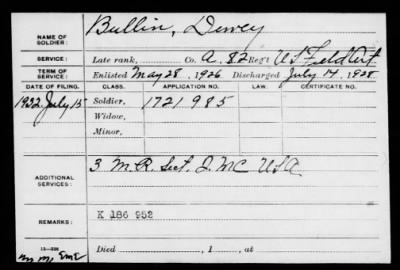 NAME OF SOLDIER: Bullin, Dewey
SERVICE: Late rank, Co. A. 82 Reg't US Field Art.
TERM OF SERVICE: Enlisted May 28, 1926 Discharged July 14, 1928
DATE OF FILING. CLASS. APPLICATION NO. LAW. CERTIFICATE NO.
1932 July 15 Soldier. 1721985
Widow,
Minor,
ADDITIONAL SERVICES: 3 M.R. Sect. Q.M.C. USA
REMARKS: K 186 952
Died , 1 , at